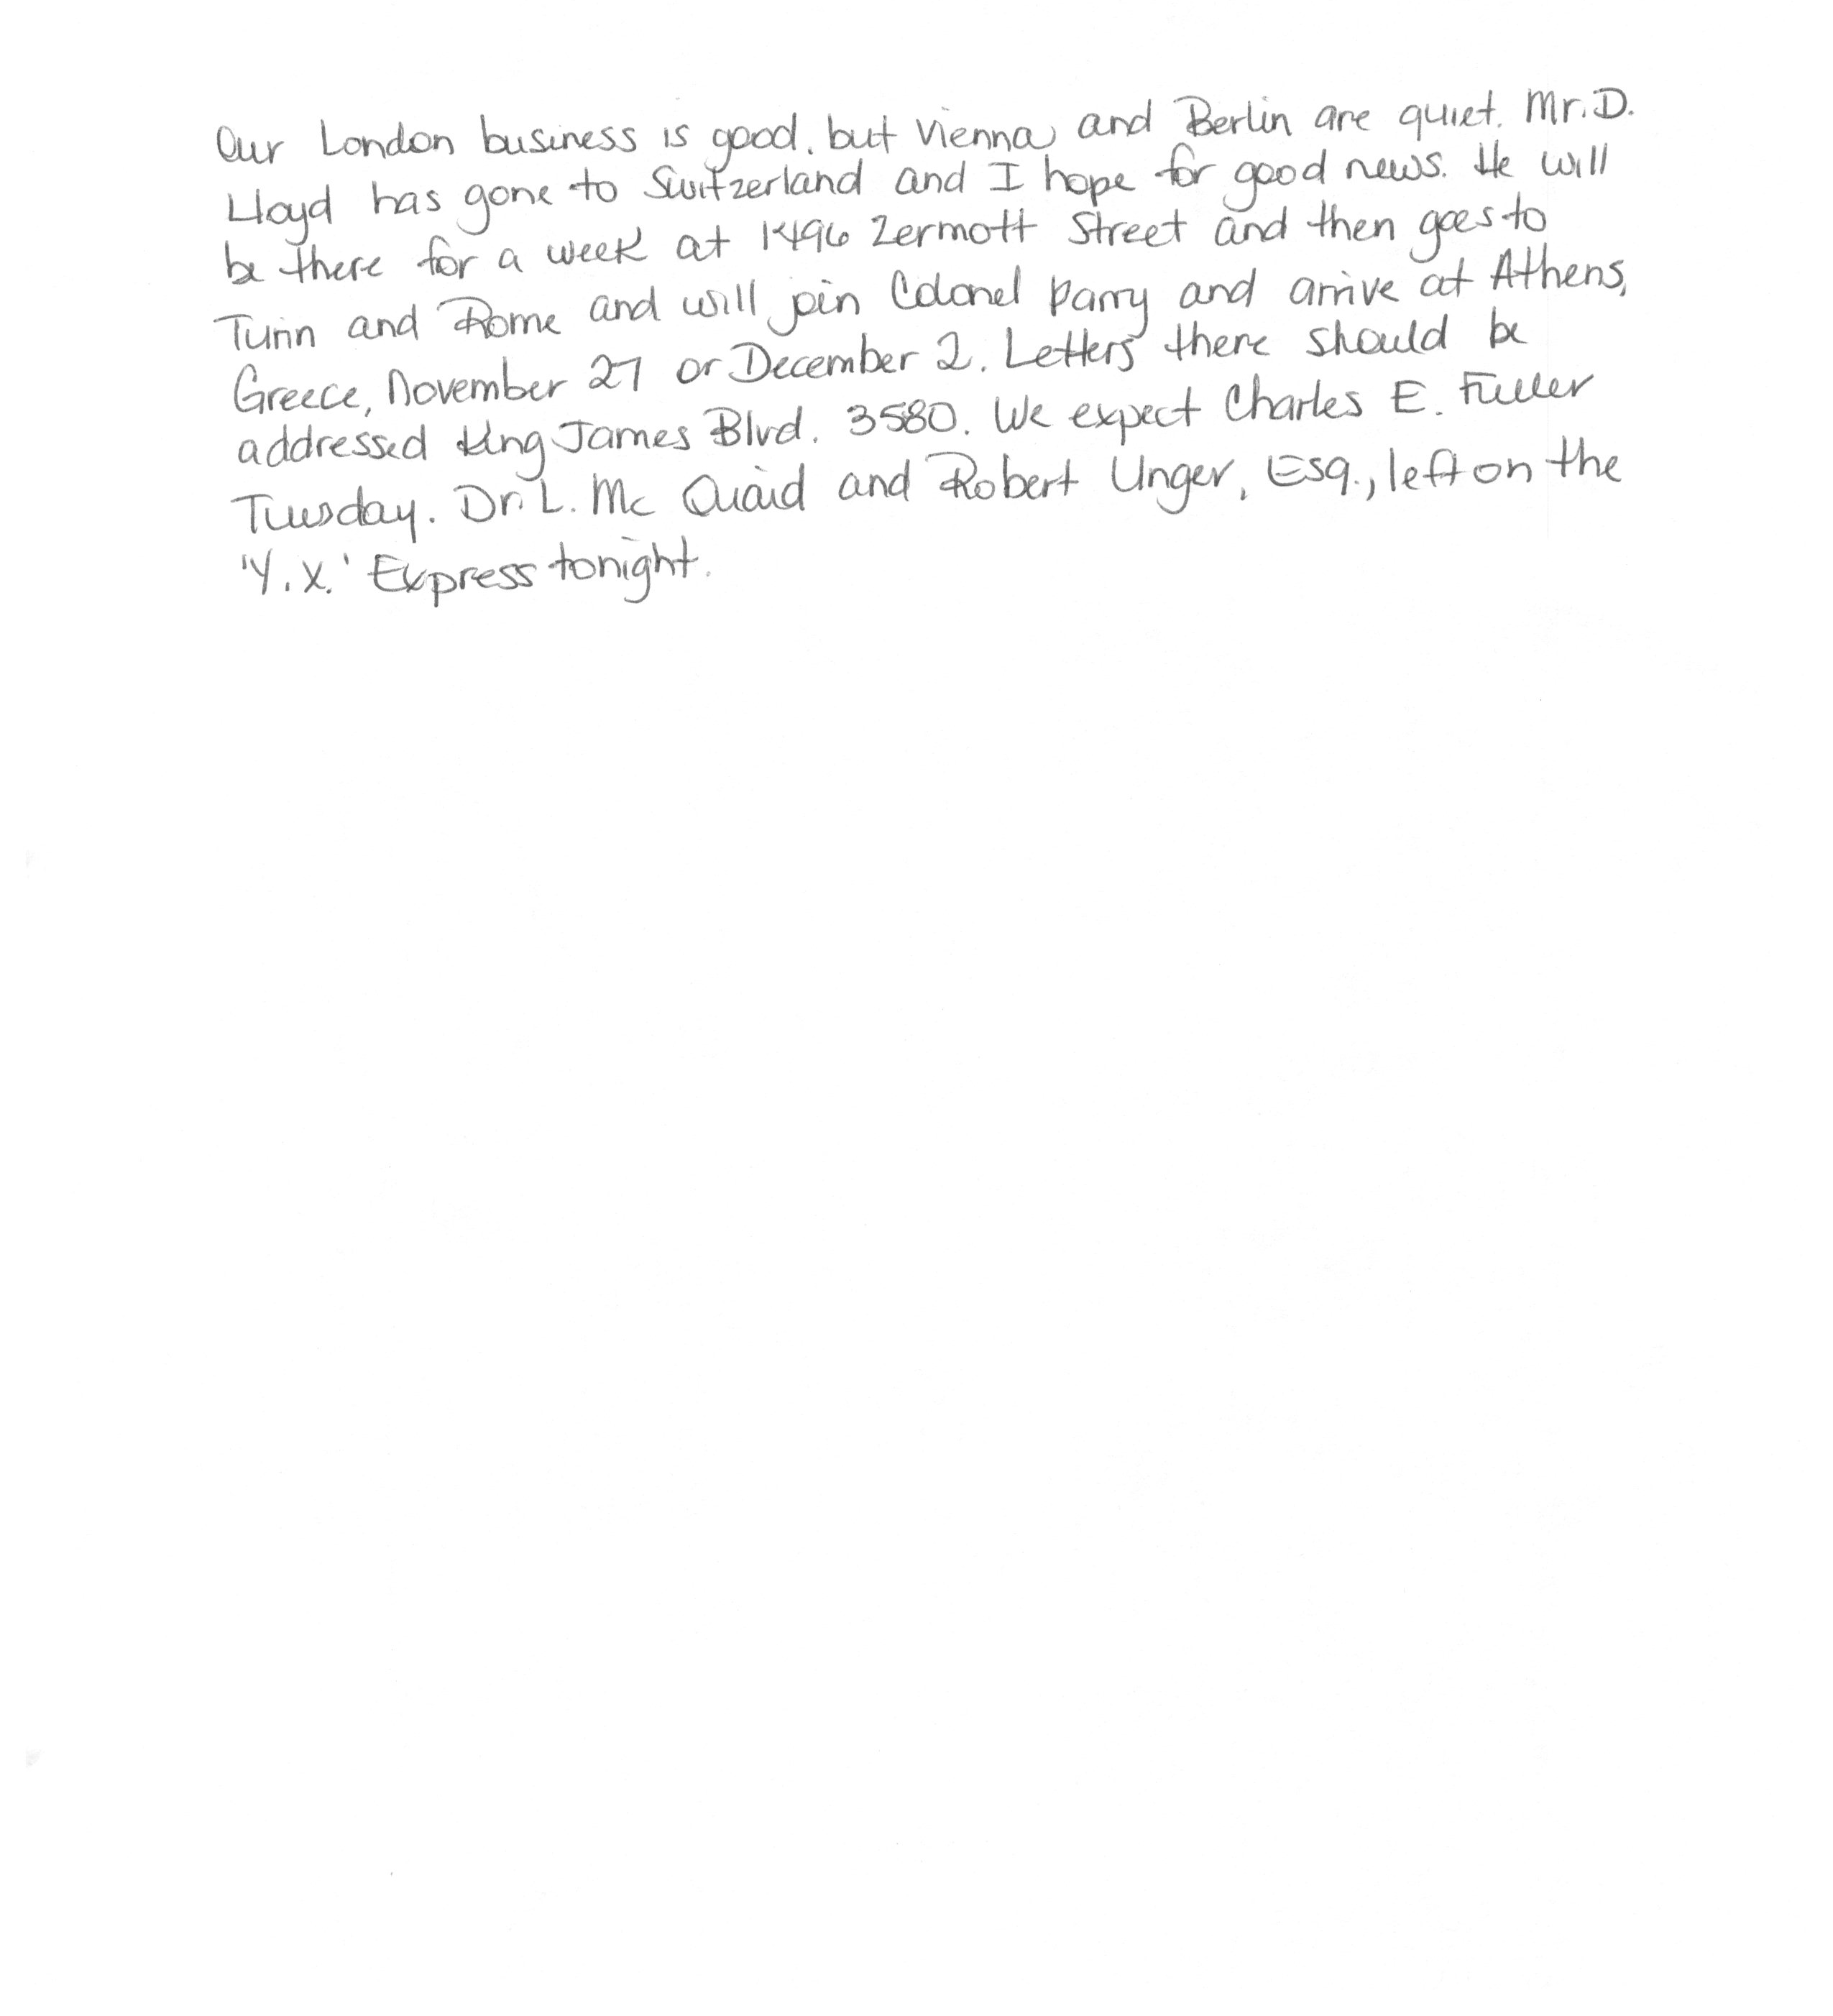 Our London business is good, but Vienna and Berlin are quiet. Mr. D.
Lloyd has gone to Switzerland and I hope for good news. He will
be there for a week at 1496 Zermott Street and then goes to
Turin and Rome and will join Colonel Parry and arrive at Athens,
Greece, November 27 or December 2. Letters there should be
addressed King James Blvd. 3580. We expect Charles E. Fuller
Tuesday. Dr. L. Mc Quaid and Robert Unger, Esq., left on the
'Y.X.' Express tonight.